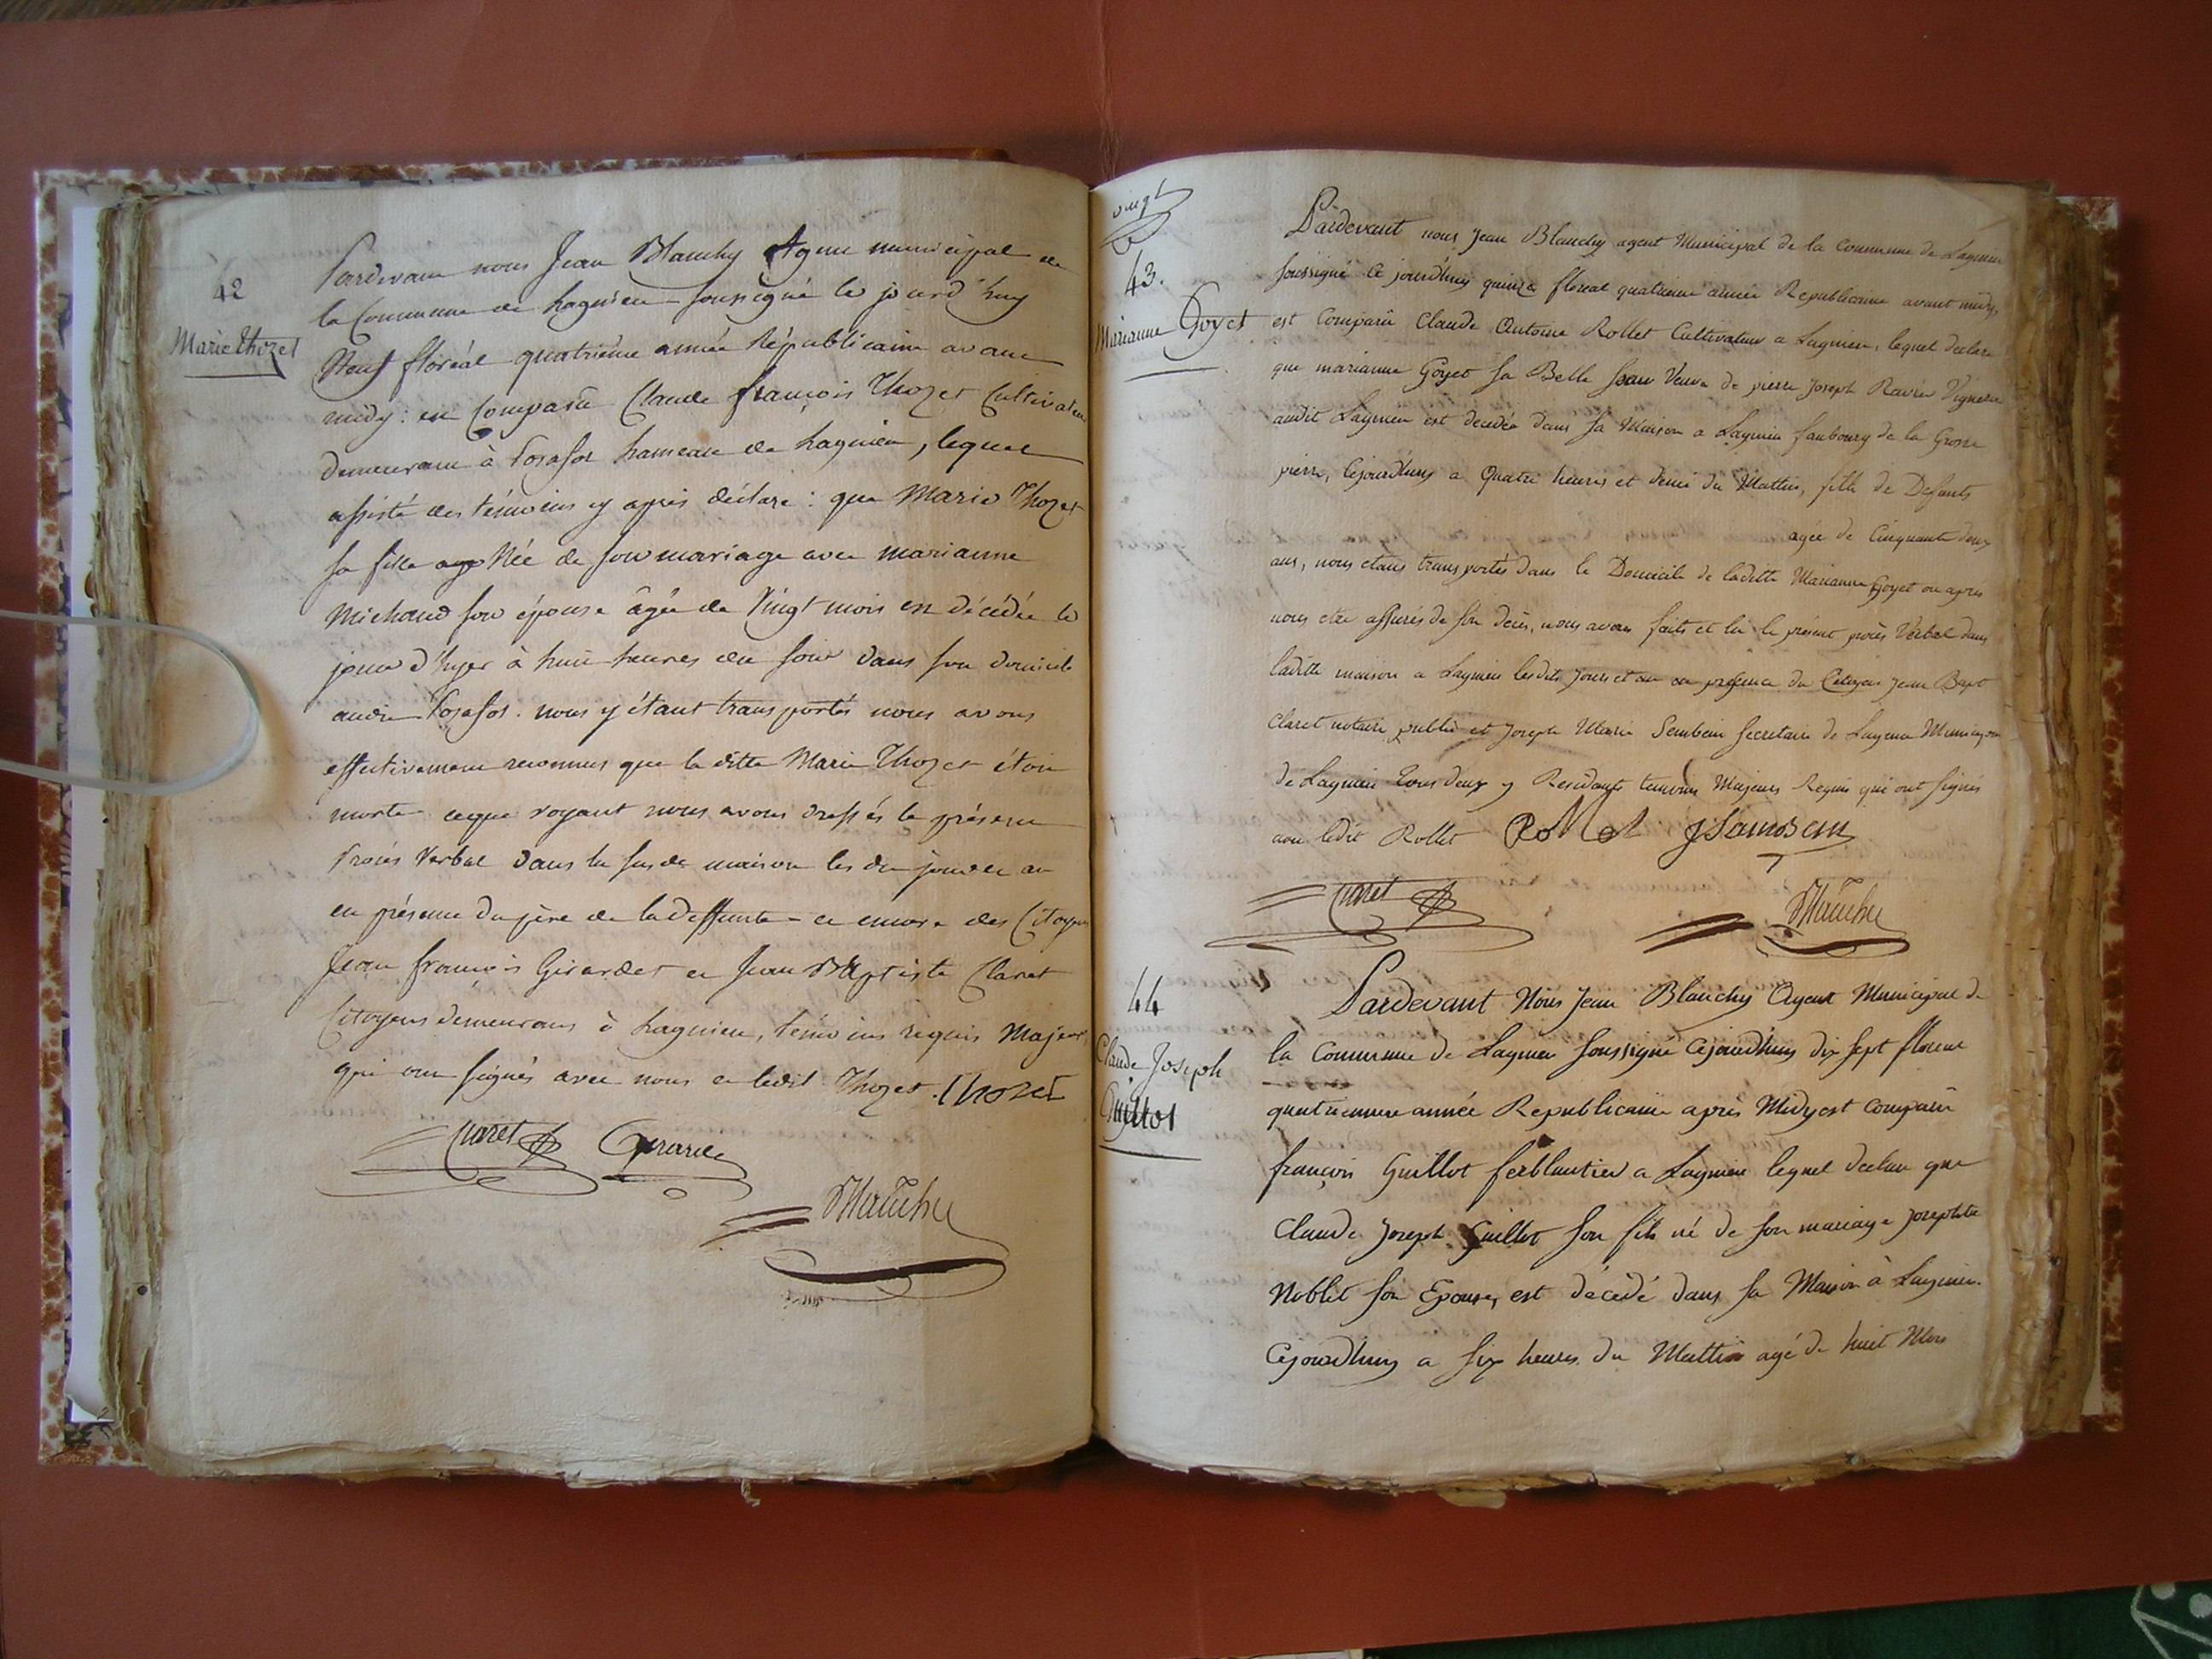 42
Marie Thozet
Pardevant nous Jean Blanchy Agent municipal de
la Commune de Lagnieu soussigné ce jourd'huy
Neuf floréal quatrième année Républicaine avant
midy : est Comparû Claude françois Thozet Cultivateur
demeurant à Posafol hameau de Lagnieu, lequel
assisté des témoins cy après déclare : que Marie Thozet
sa fille Née de son mariage avec marianne
Michaud son épouse âgée de Vingt mois est décédée le
jour d'hyer à huit heures du soir dans son domicile
audit Posafol. nous y étant transportés nous avons
effectivement reconnus que la ditte Marie Thozet étoit
morte ceque voyant nous avons dressés le présent
Procès Verbal dans la susde maison les dit jour et an
en présence du père de la deffunte - et encore des Citoyens
Jean françois Girardet et Jean Baptiste Claret
Citoyens demeurans à Lagnieu, témoins requis Majeurs
qui ont signés avec nous et ledit Thozet. Thozet
Claret Girardet
Blanchy
vingt
43.
Marianne Goyet
Pardevant nous Jean Blanchy agent Municipal de la Commune de Lagnieu
soussigné ce jourd'huy quinze floreal quatrieme année Republicaine avant midy,
est Comparû Claude Antoine Rollet Cultivateur a Lagnieu, lequel declare
que marianne Goyet sa Belle soeur Veuve de pierre Joseph Ravier Vigneron
audit Lagnieu est decedée dans sa Maison a Lagnieu faubourg de la Grosse
pierre, cejourdhuy a Quatre heures et demi du Mattin, fille de Defunts
agée de Cinquante deux
ans, nous etant transportés dans le Domicile de laditte Marianne Goyet ou apres
nous etre assurés de son decès, nous avons faits et lû le présent procès Verbal dans
laditte maison a Lagnieu lesdits Jours et an en presence du Citoyen Jean Bapt
Claret notaire public et Joseph Marie Sembein secretaire de Lagence Municipal
de Lagnieu Tous deux y Residants temoins Majeurs Requis qui ont signés
avec ledit Rollet Rollet J Sambein
Claret Blanchy
44
Claude Joseph
Guillot
Pardevant Nous Jean Blanchy Agent Municipal de
la Commune de Lagnieu soussigné Cejourdhuy dix sept floreal
quatriemme année Republicaine après Midy est comparû
françois Guillot ferblantier a Lagnieu lequel declare que
Claude Joseph Guillot son fils né de son mariage Josephte
Noblet son Epouse, est décedé dans sa Maison à Lagnieu
Cejourdhuy a six heures du Mattin agé de huit Mois